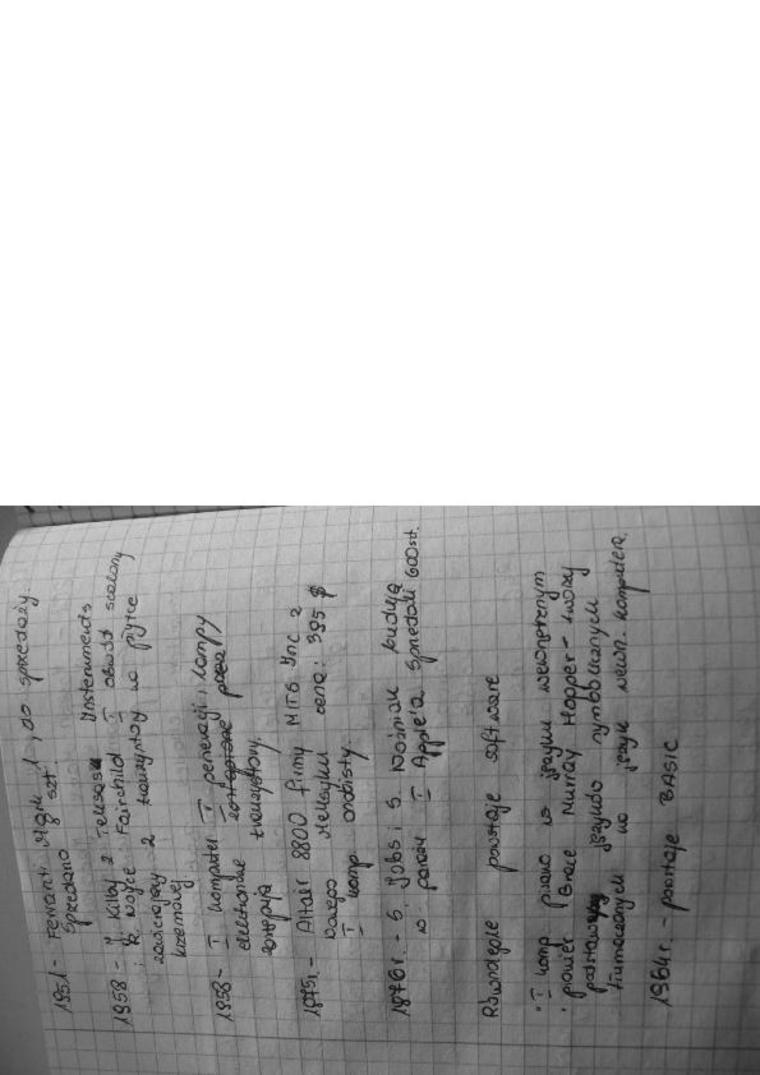 1951 - Ferranti Mark 1, do sprzedaży.
Sprzedano szt.
1958 - Kilby z Texsas Insteruments
i R. Noyce Fairchild I obwód scalony
zawierający 2 tranzystory w płytce
krzemowej.
1958 - I komputer II generacji, lampy
elektronowe
zastępują tranzystory.
1975r. - Altair 8800 firmy MITS Inc z
Nowego Meksyku cena: 395 $
I komp. osobisty.
1976r. - S. Jobs i S. Woźniak budują
w garażu I Apple'a sprzedali 600szt.
Równolegle powstaje software
· I komp pisano w języku wewnętrznym
· pionier Grace Murray Hopper - tworzy
podstawy języków symbolicznych
tłumaczonych na język wewn. komputera.
1964r. - powstaje BASIC